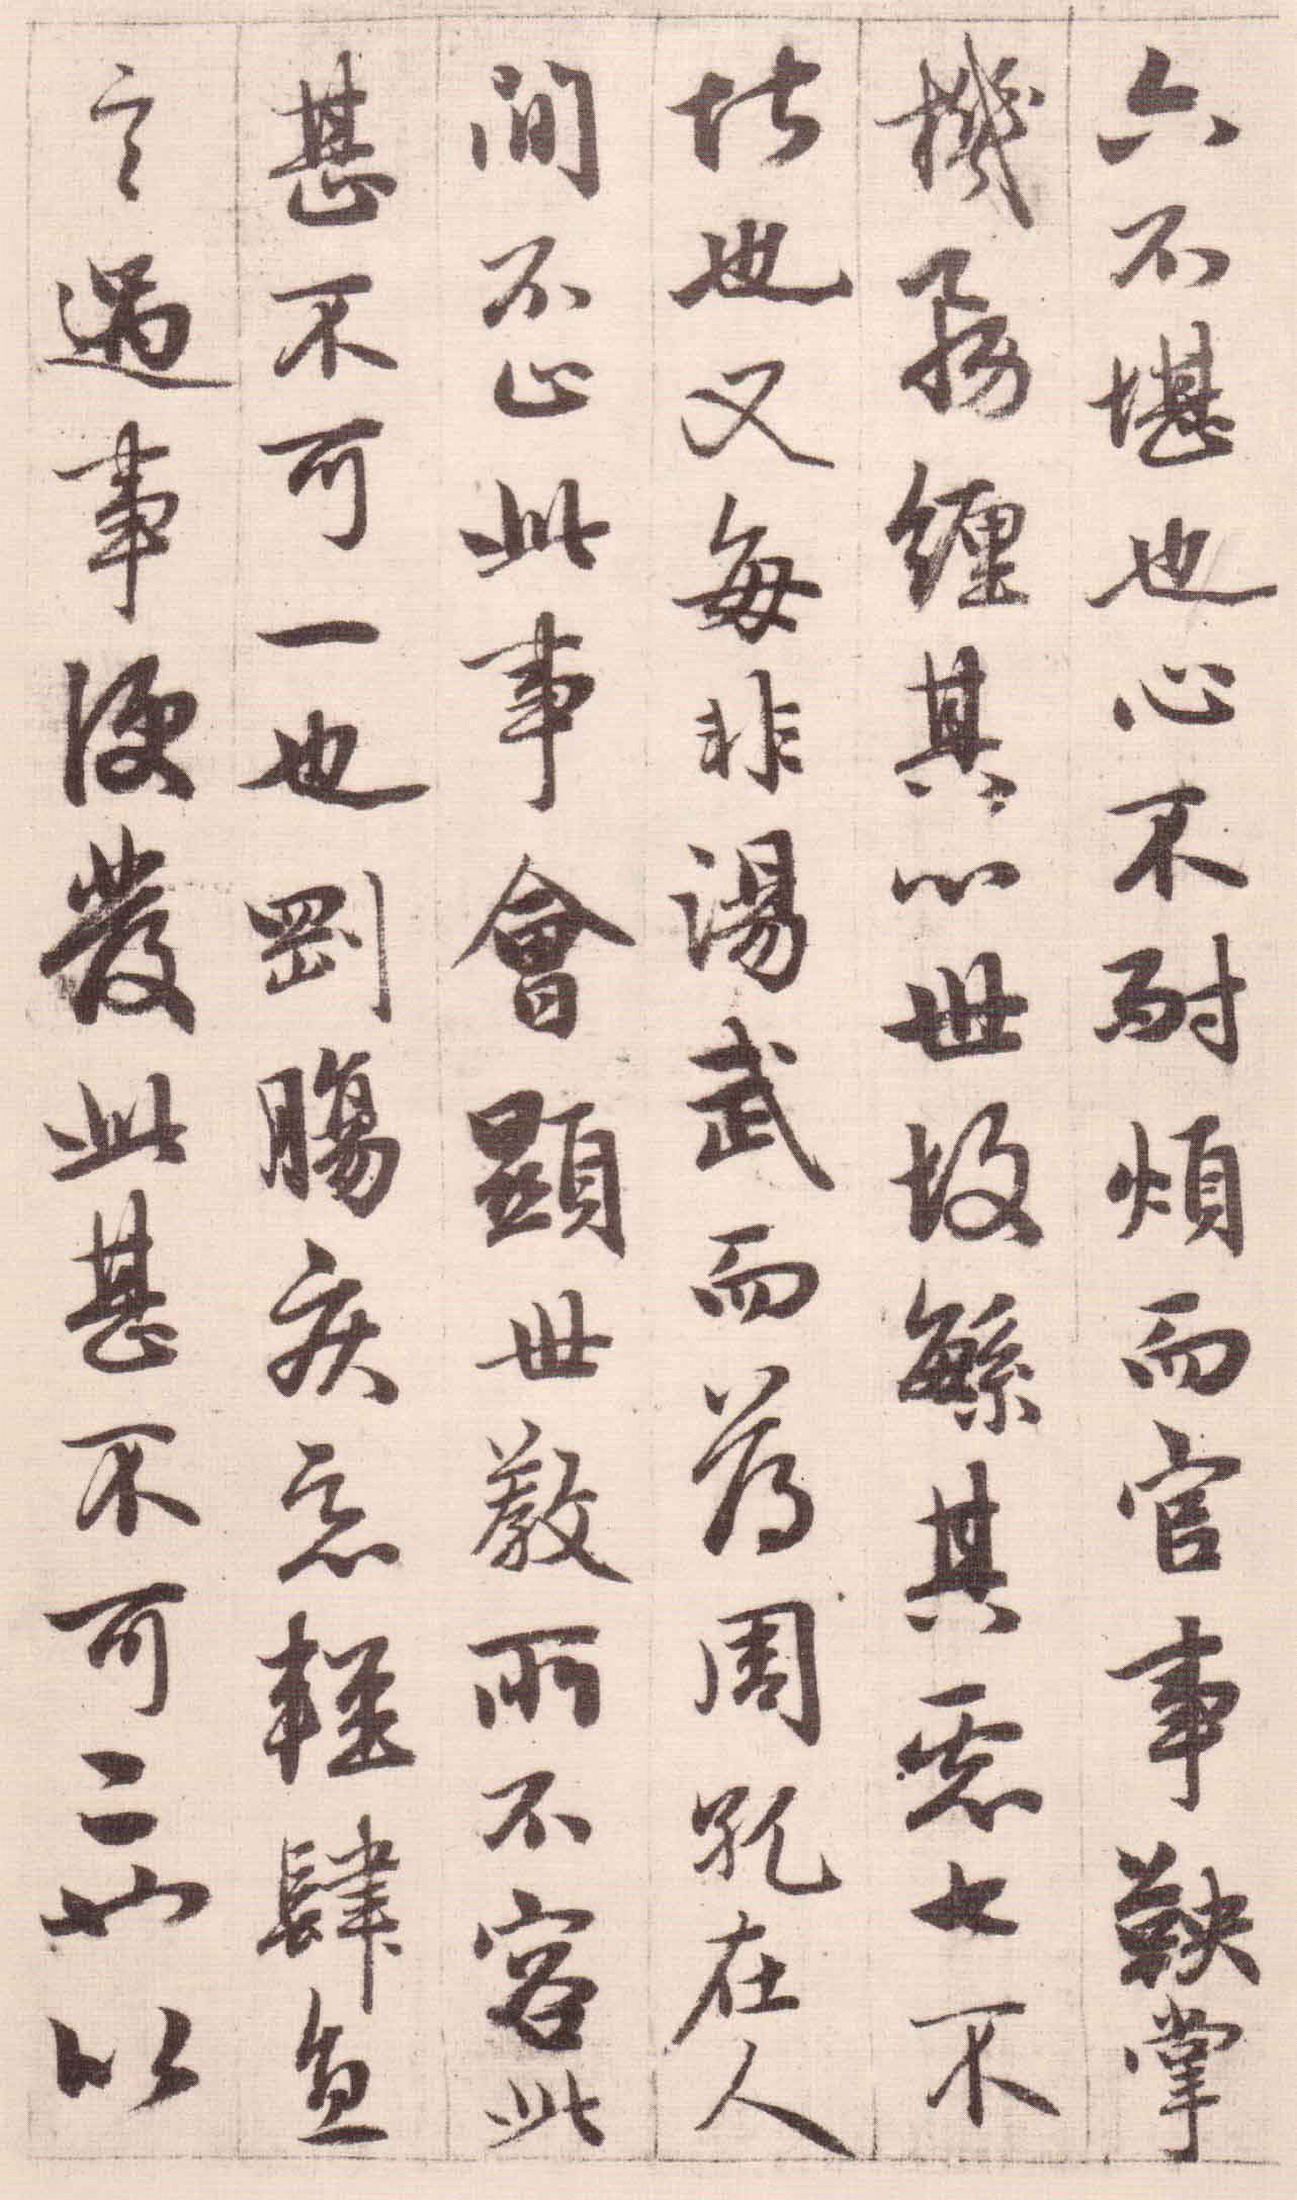 六不堪也心不耐煩而官事鞅掌
機務纏其心世故繁其慮七不
堪也又每非湯武而薄周孔在人
間不止此事會顯世教所不容此
甚不可一也剛腸疾惡輕肆直
言遇事便發此甚不可二也以